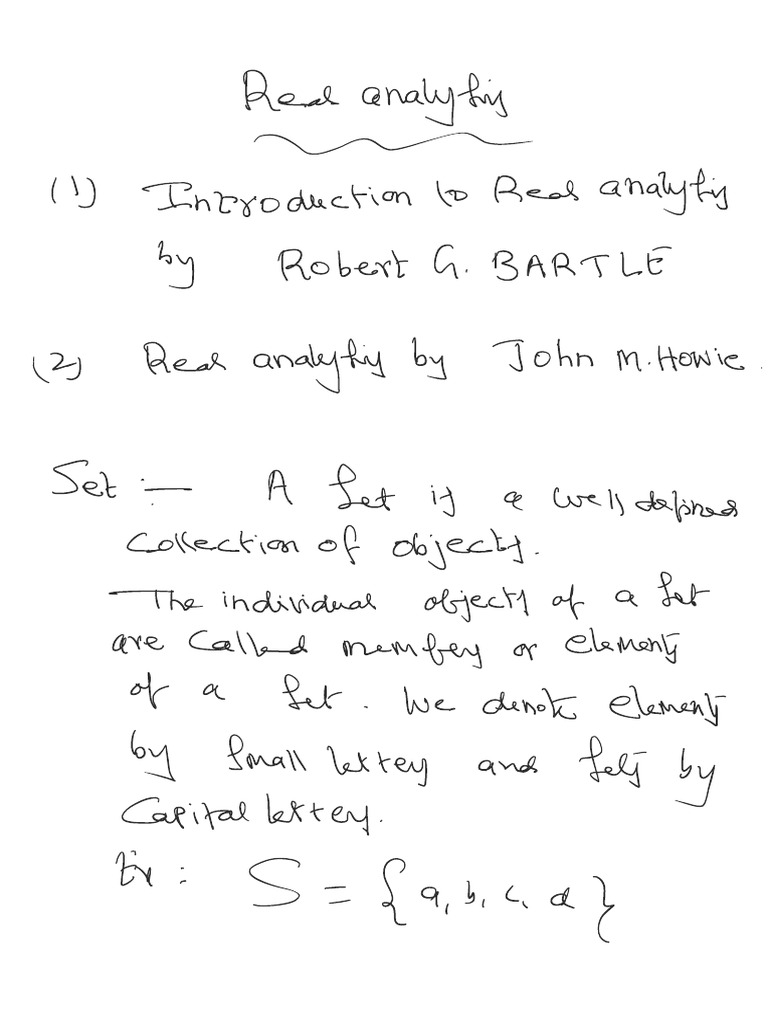 Real analysis
(1) Introduction to Real analysis
by Robert G. BARTLE
(2) Real analysis by John M. Howie.
Set :- A set is a well defined
collection of objects.
The individual objects of a set
are called members or elements
of a set. We denote elements
by small letters and sets by
capital letters.
Ex : S = {a, b, c, d}